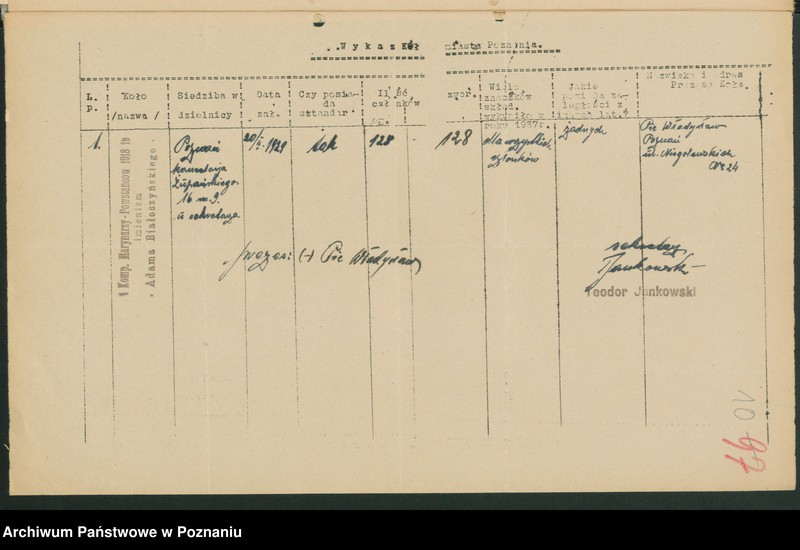 Wykaz Kół miasta Poznania.
L. p.
Koło /nazwa/
Siedziba w dzielnicy
Data zał.
Czy posiada sztandar
Ilość członków
Wiele znaczków składk. wykupiło w roku 1937:
Jakie posiada zaległości z innych lat?
Nazwisko i adres Prezesa Koła.
1.
1 Komp. Marynarzy-Powstańców 1918 19
imieniem
Adama Białoszyńskiego
Poznań
Żupańskiego
16 m. 9.
u sekretarza
1929
tak
128
128
dla wszystkich
członków
żadnych
Pic Władysław
Poznań
ul. Niegolewskich
Nr 24
prezes: (-) Pic Władysław
sekretarz
Jankowski
Teodor Jankowski
10
97
Archiwum Państwowe w Poznaniu